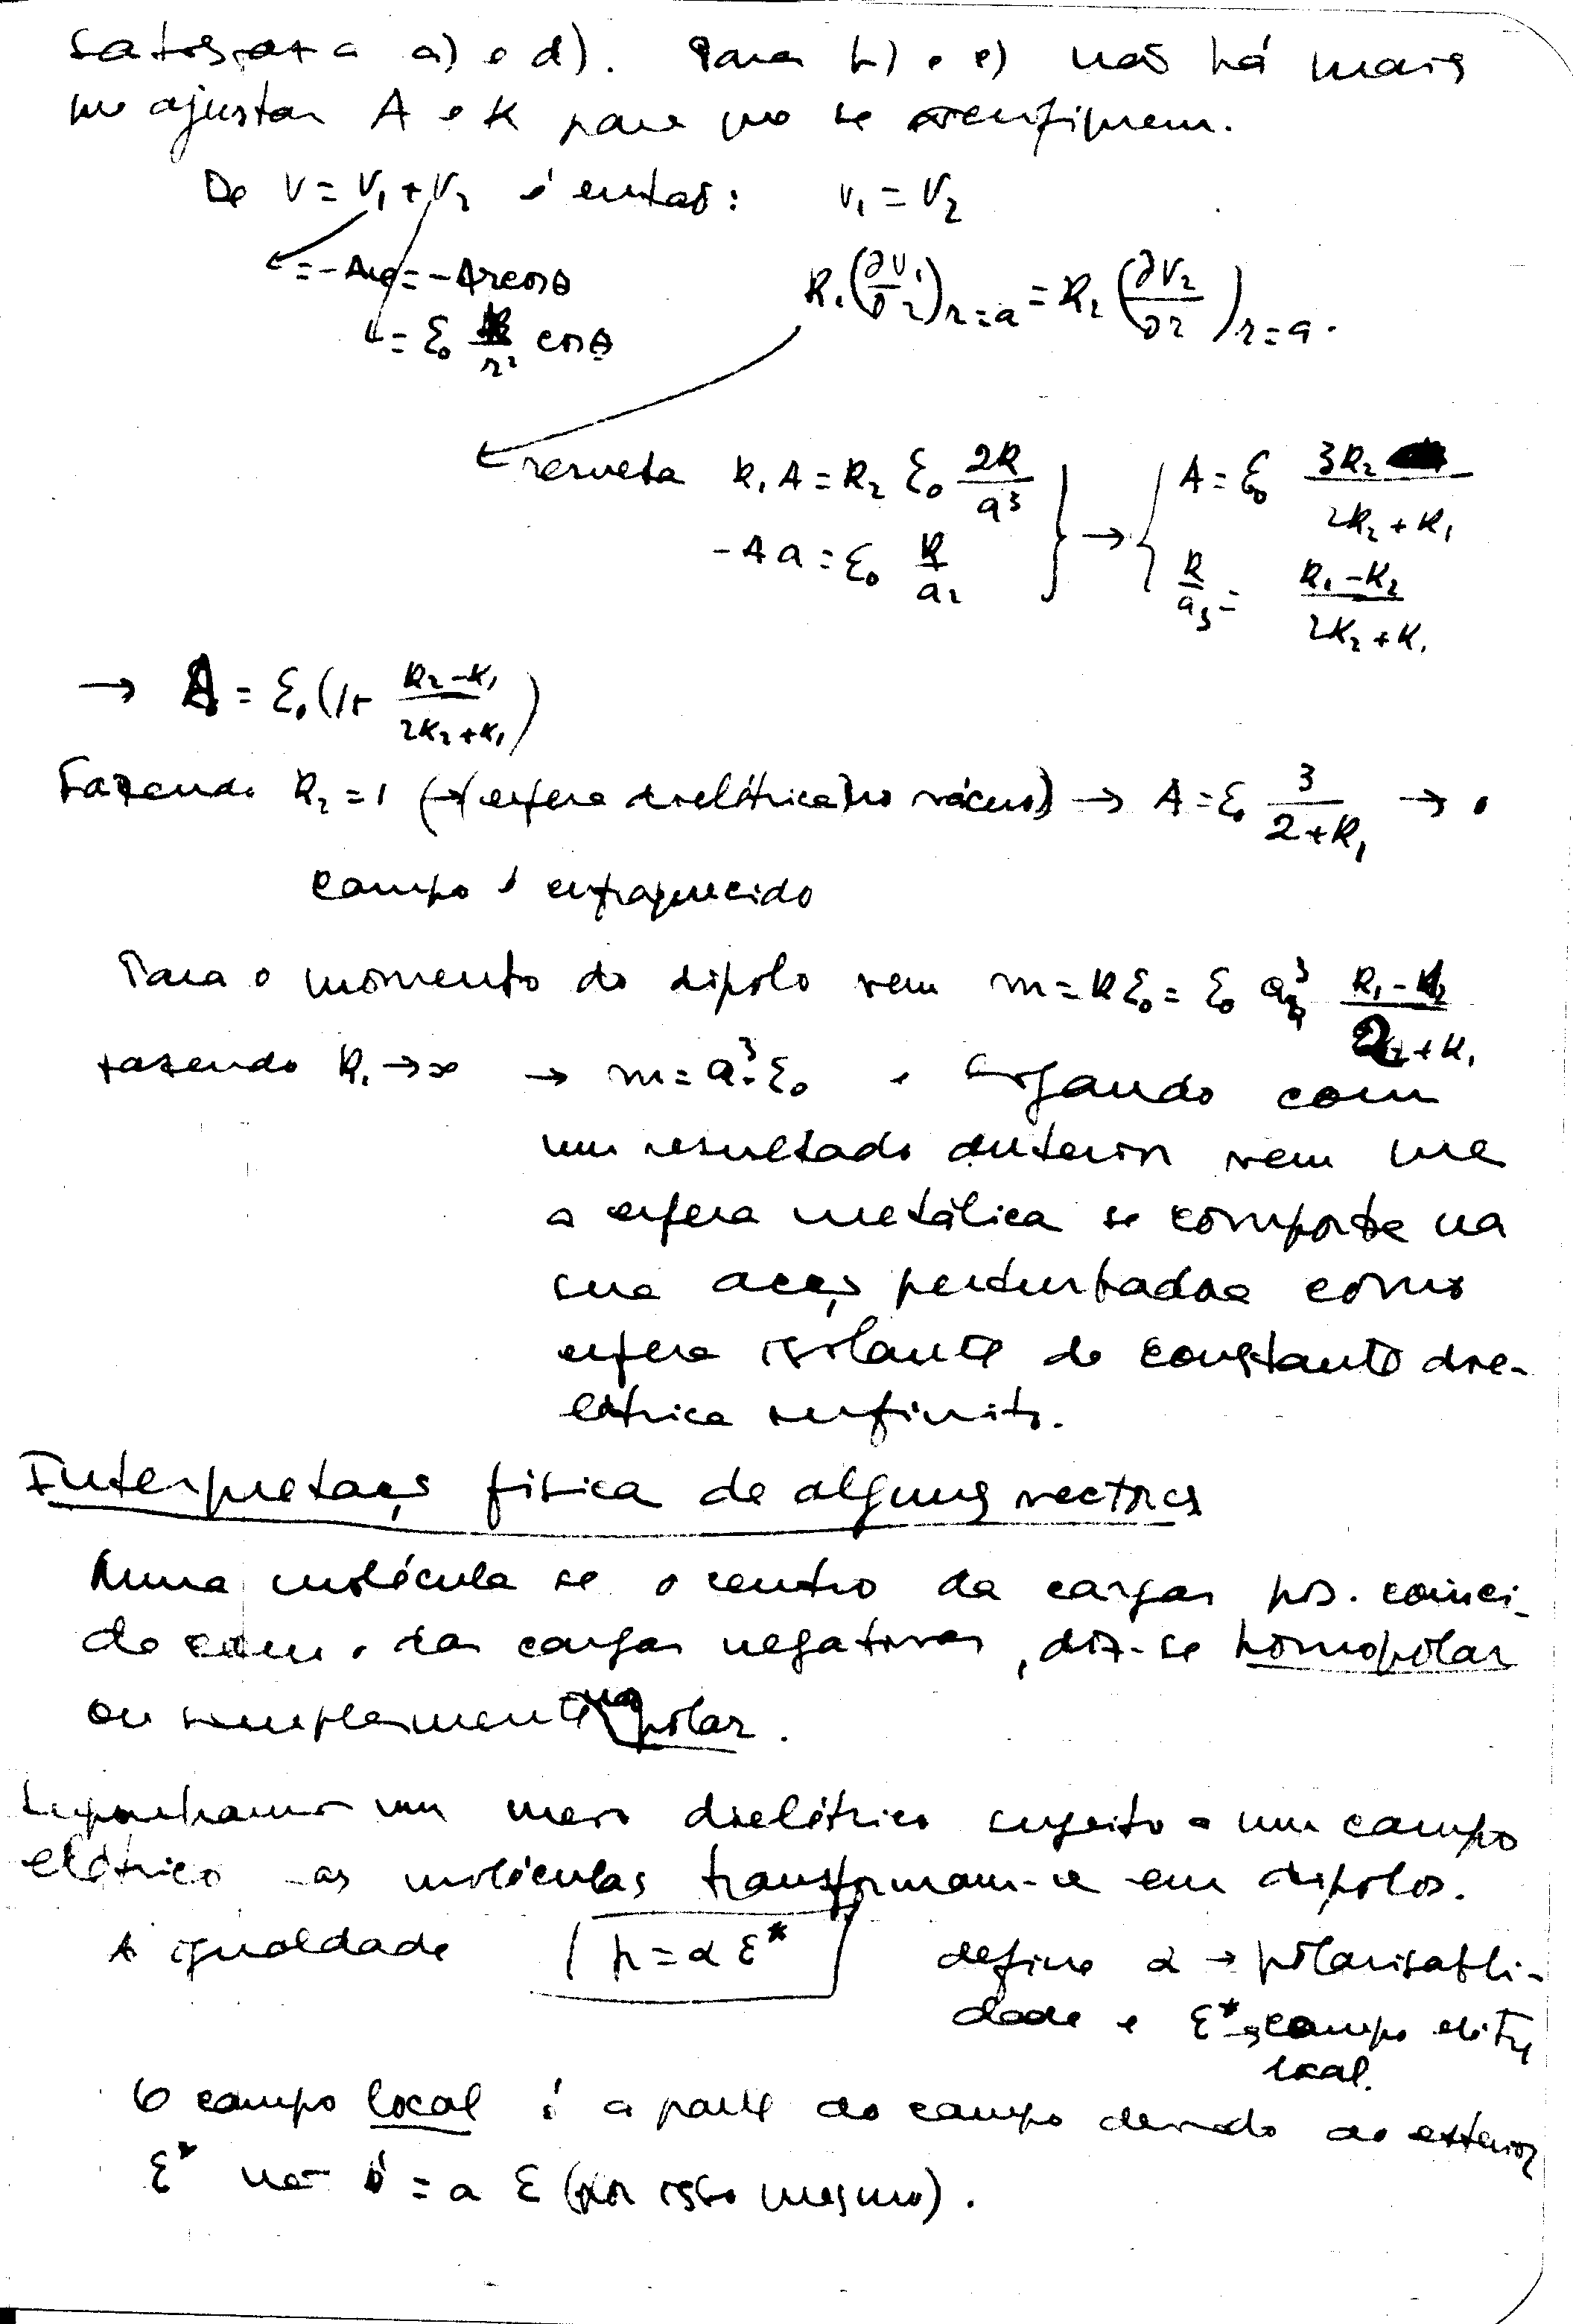 satisfaz a a) e d). Para b) e e) não há mais
que ajustar A e K para que se verifiquem.
De V = V₁ + V₂ é então: V₁ = V₂
= -Ax = -Ar cosθ
= ℰ₀ K/r² cosθ
K₁ (∂V₁/∂r)r=a = K₂ (∂V₂/∂r)r=a.
resulta K₁A = K₂ ℰ₀ 2K/a³ } → { A = ℰ₀ 3K₂/(2K₂+K₁)
-Aa = ℰ₀ K/a² K/a³ = (K₁-K₂)/(2K₂+K₁)
→ A = ℰ₀ (1+ (K₂-K₁)/(2K₂+K₁))
Fazendo K₂ = 1 (→ (esfera dielétrica) no vácuo) → A = ℰ₀ 3/(2+K₁) → o
campo é enfraquecido
Para o momento do dipolo vem m = Kℰ₀ = ℰ₀ a³ (K₁-K₂)/(2K₂+K₁)
fazendo K₁ → ∞ → m = a³ℰ₀ e ligando com
um resultado anterior vem que
a esfera metálica se comporta na
sua acção perturbadora como
esfera isolante de constante die-
létrica infinita.
Interpretação física de alguns vectores
Numa molécula se o centro da cargas pos. coinci-
de com o das cargas negativas, diz-se homopolar
ou simplesmente não polar.
Suponhamos um meio dielétrico sujeito a um campo
elétrico as moléculas transformam-se em dipolos.
A igualdade p = αℰ* define α → polarisabili-
dade e ℰ* → campo elétr
local.
O campo local é a parte do campo devido ao exterior
ℰ* não é = a ℰ (por isso mesmo).